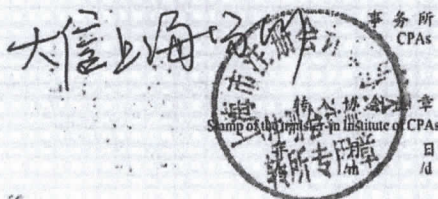 大信上海分所
事务所
CPAs
转入协会盖章
Stamp of the transfer-in Institute of CPAs
上海市注册会计
转所专用章
年 月 日
/m /d